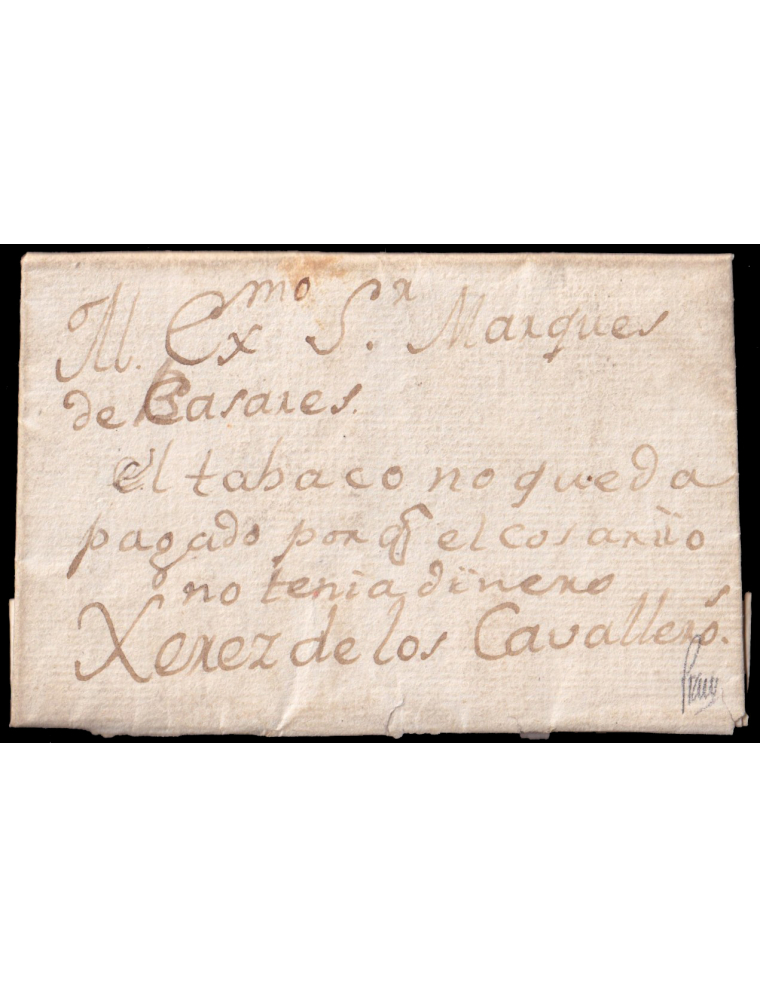 Al. Exmo Sr. Marques
de Casares.
el tabaco no queda
pagado por q el cosario
no tenia dinero
Xerez de los Cavalleros.